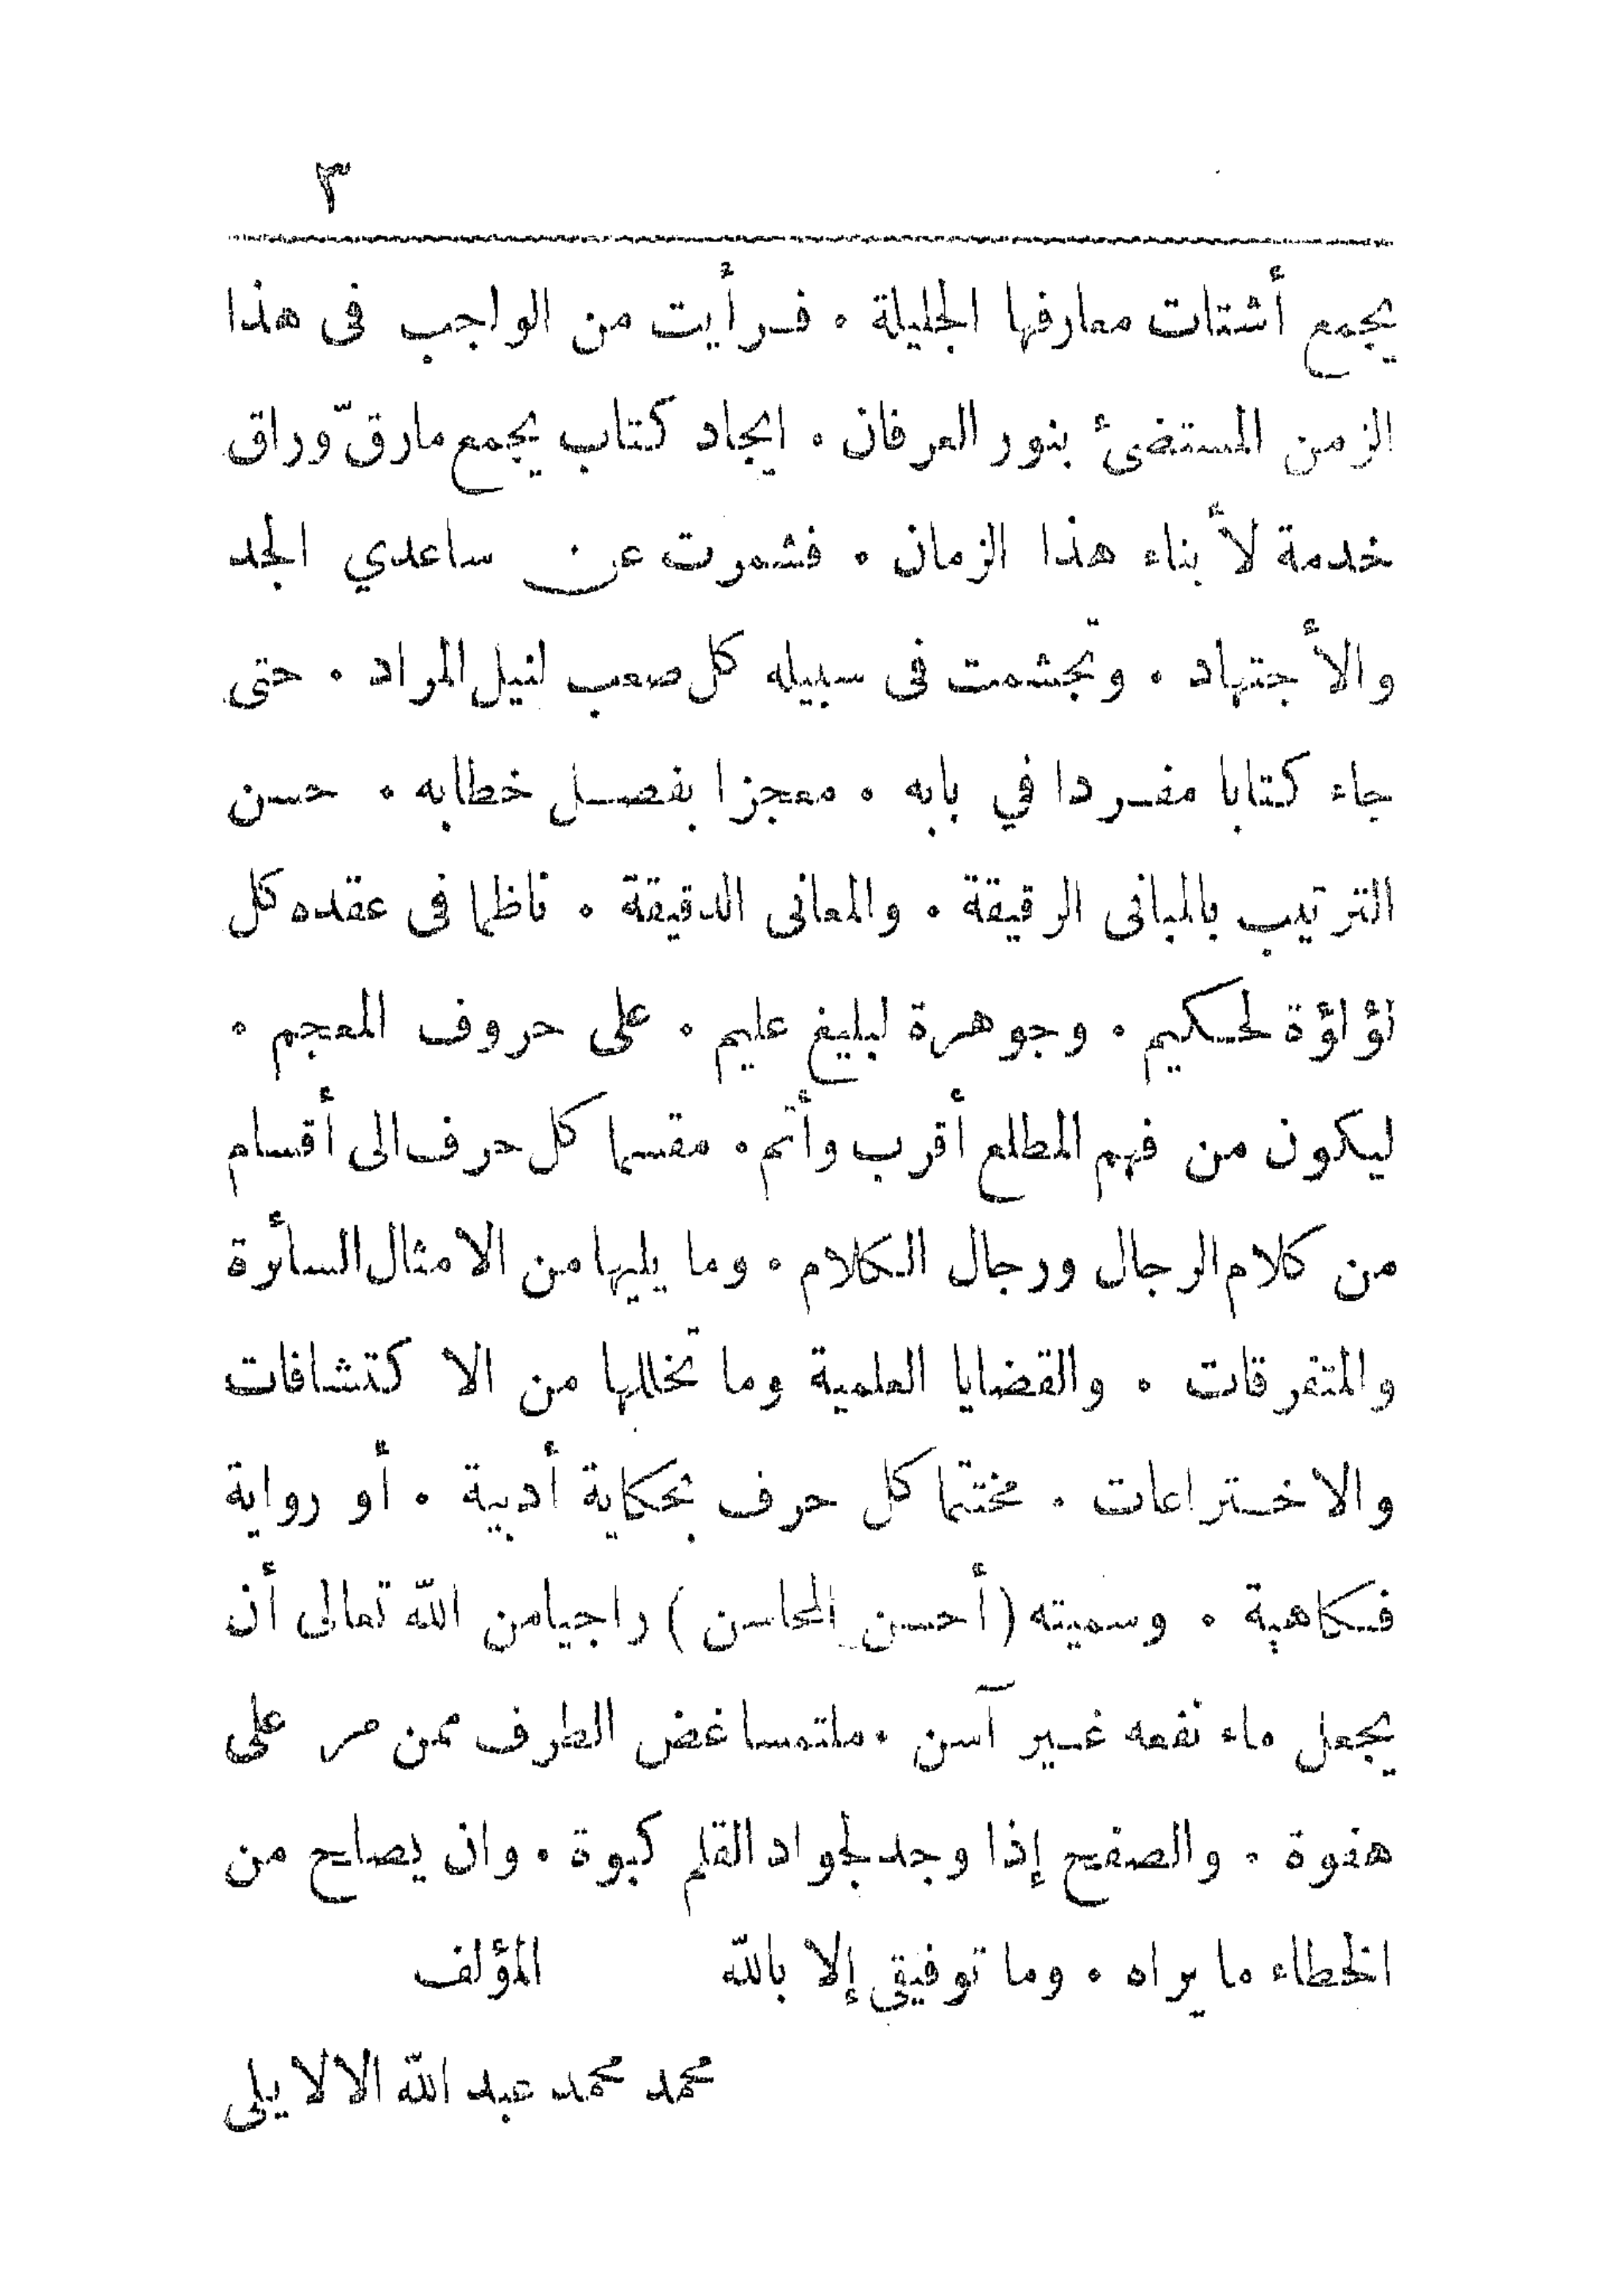 ٣
يجمع أشتات معارفها الجليلة . فرأيت من الواجب فى هذا
الزمن المستضئ بنور العرفان . ايجاد كتاب يجمع مارقّ وراق
خدمة لأبناء هذا الزمان . فشمرت عن ساعدي الجد
والأجتهاد . وتجشمت فى سبيله كل صعب لنيل المراد . حتى
جاء كتابا مفردا في بابه . معجزا بفصل خطابه . حسن
الترتيب بالمبانى الرقيقة . والمعانى الدقيقة . ناظما فى عقده كل
لؤلؤة لحكيم . وجوهرة لبليغ عليم . على حروف المعجم .
ليكون من فهم المطلع أقرب وأتم . مقسما كل حرف الى أقسام
من كلام الرجال ورجال الكلام . وما يليها من الامثال السأرة
والمتفرقات . والقضايا العلمية وما تخللها من الاكتشافات
والاختراعات . مختتما كل حرف بحكاية أدبية . أو رواية
فكاهية . وسميته (أحسن المحاسن) راجيا من الله تعالى أن
يجعل ماء نفعه غير آسن . ملتمسا غض الطرف ممن مر على
هفوة . والصفح إذا وجد لجواد القلم كبوة . وان يصلح من
الخطاء ما يراه . وما توفيقى إلا بالله المؤلف
محمد محمد عبد الله الالايلى